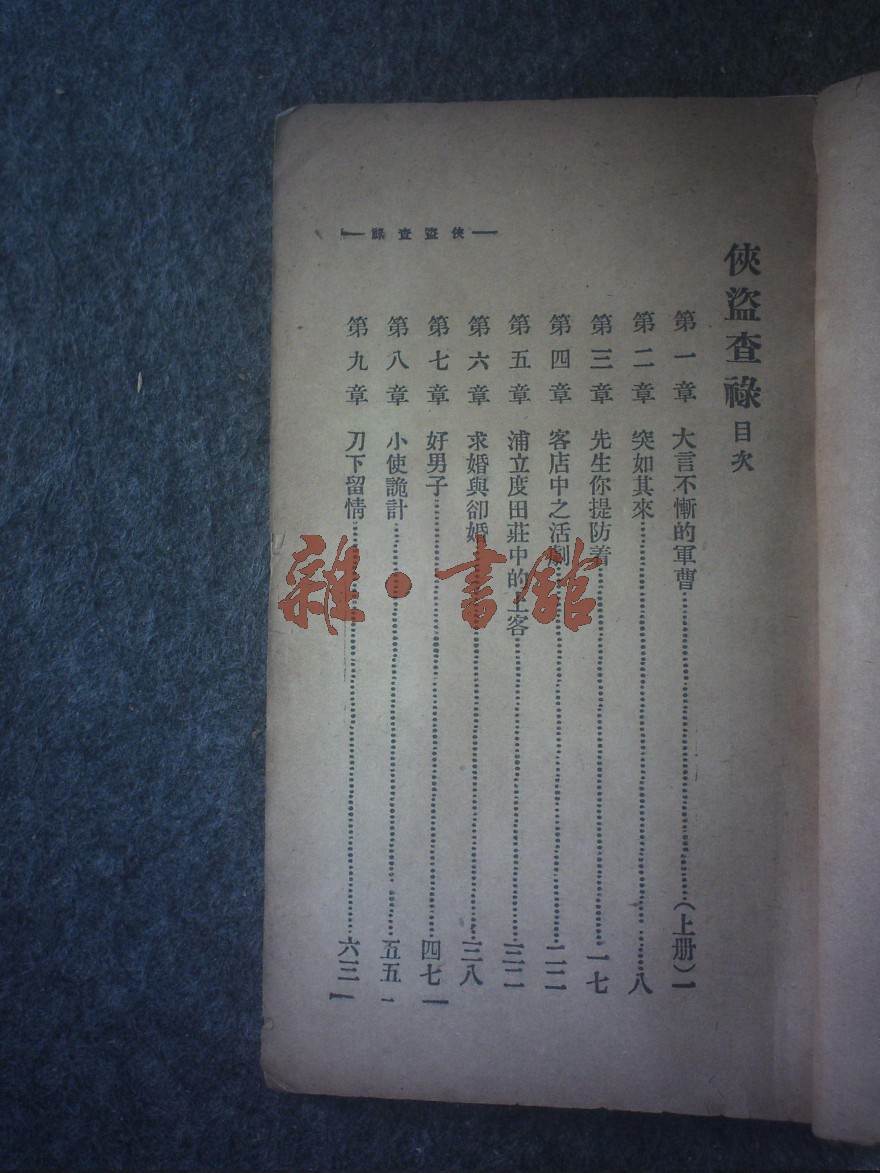 俠盜查祿目次
第一章 大言不慚的軍曹…………(上册)一
第二章 突如其來…………八
第三章 先生你提防着…………一七
第四章 客店中之活劇…………二二
第五章 浦立度田莊中的上客…………三二
第六章 求婚與卻婚…………三八
第七章 好男子…………四七
第八章 小使詭計…………五五
第九章 刀下留情…………六三
俠盜查祿
一
雜·書館